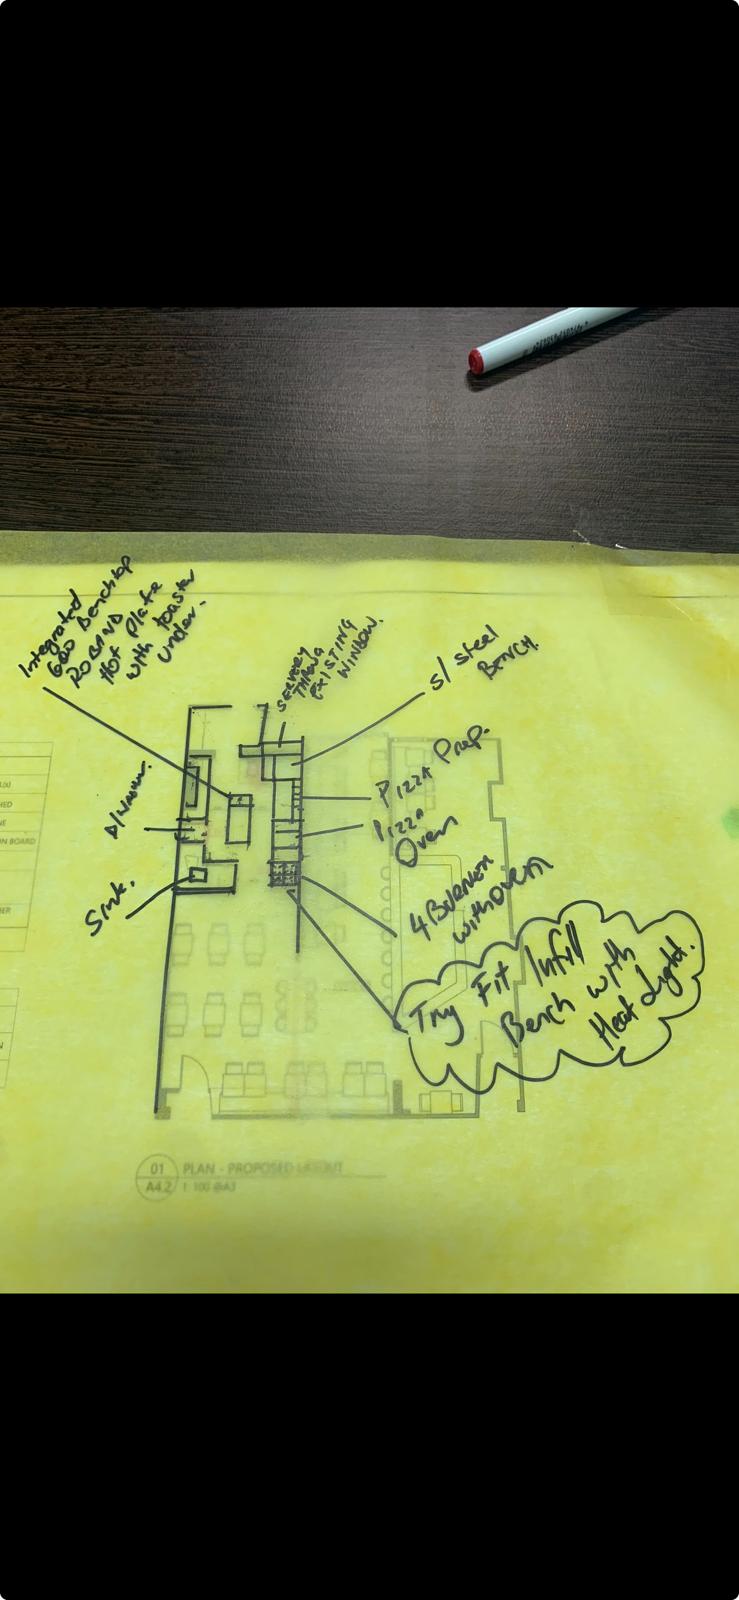 Integrated
600 Benchtop
ROBAND
Hot Plate
with toaster
under.
SERVERY
THROUG
EXISTING
WINDOW.
S/ steel
BENCH.
Pizza Prep.
Pizza
Oven
4 BURNER
with oven
Try Fit Infill
Bench with
Heat Light.
Sink.
HED
NE
ON BOARD
BER
N
01
A4.2
PLAN - PROPOSED LAYOUT
1:100 @A3